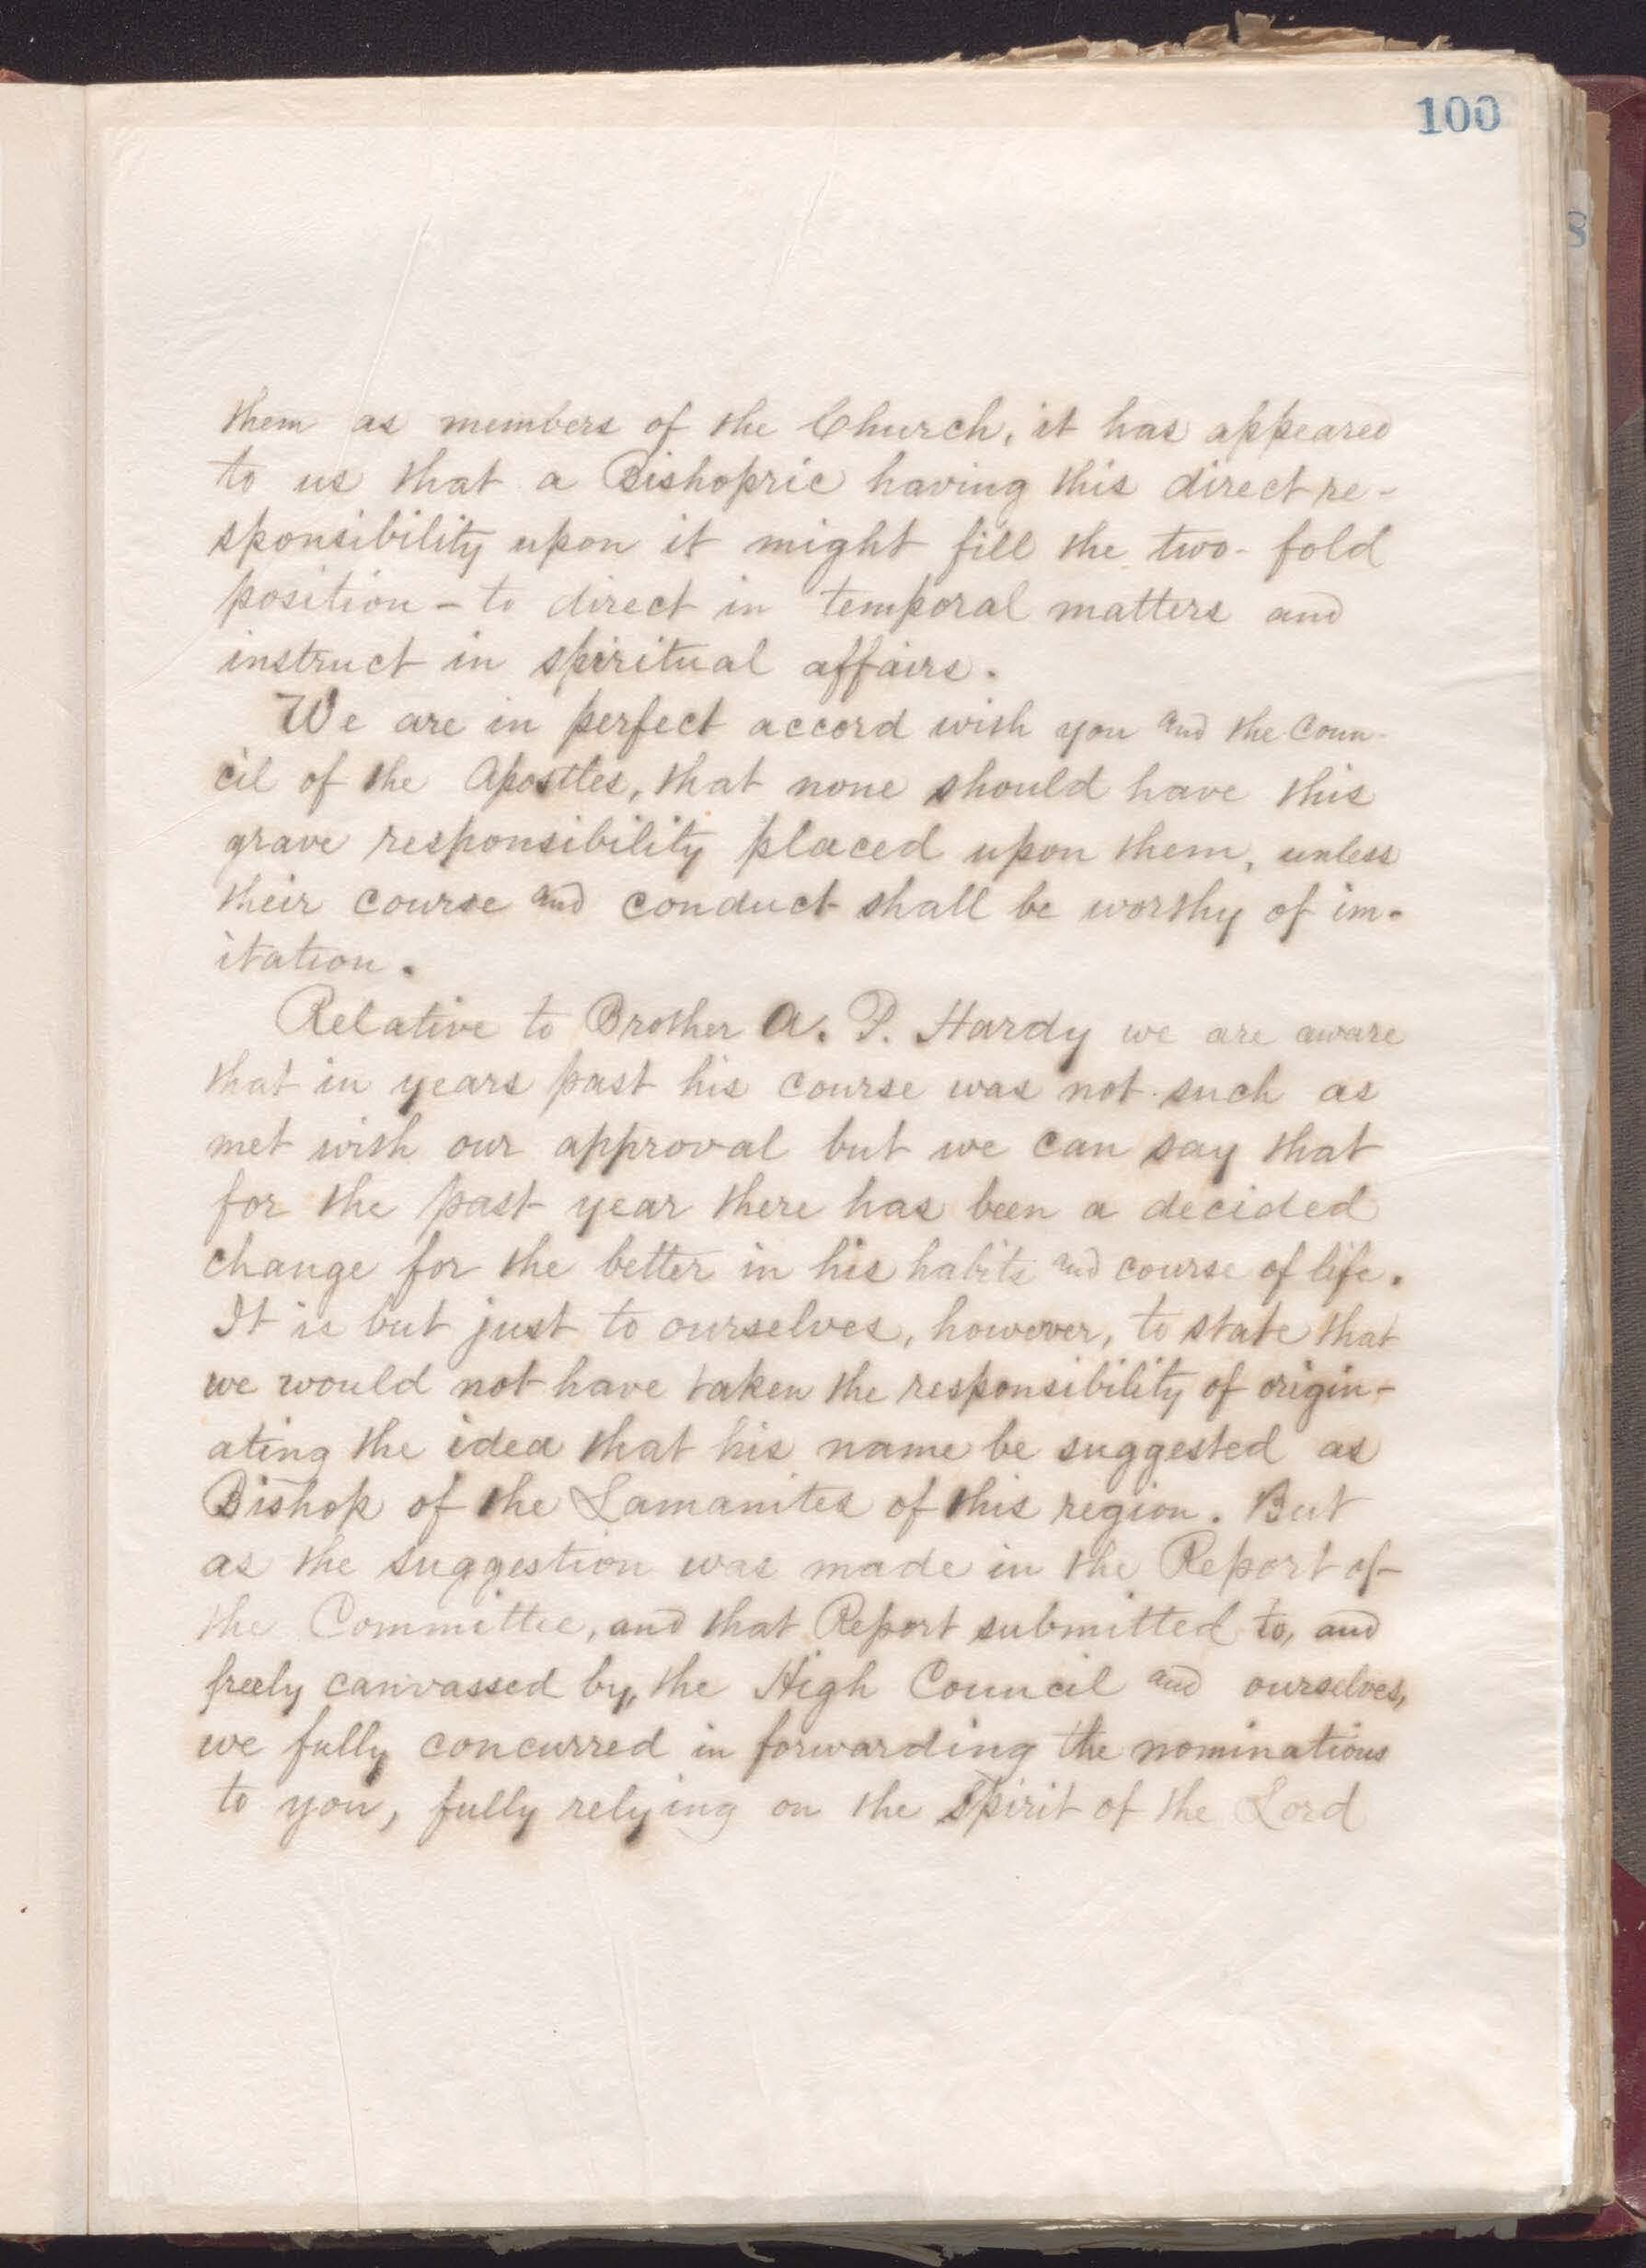 100
8
them as members of the Church, it has appeared
to us that a Bishopric having this direct re-
sponsibility upon it might fill the two-fold
position - to direct in temporal matters and
instruct in spiritual affairs.
We are in perfect accord with you and the Coun-
cil of the Apostles, that none should have this
grave responsibility placed upon them, unless
their course and conduct shall be worthy of im-
itation.
Relative to Brother A. P. Hardy we are aware
that in years past his course was not such as
met with our approval but we can say that
for the past year there has been a decided
change for the better in his habits and course of life.
It is but just to ourselves, however, to state that
we would not have taken the responsibility of origin-
ating the idea that his name be suggested as
Bishop of the Lamanites of this region. But
as the suggestion was made in the Report of
the Committee, and that Report submitted to, and
freely canvassed by, the High Council and ourselves,
we fully concurred in forwarding the nominations
to you, fully relying on the Spirit of the Lord